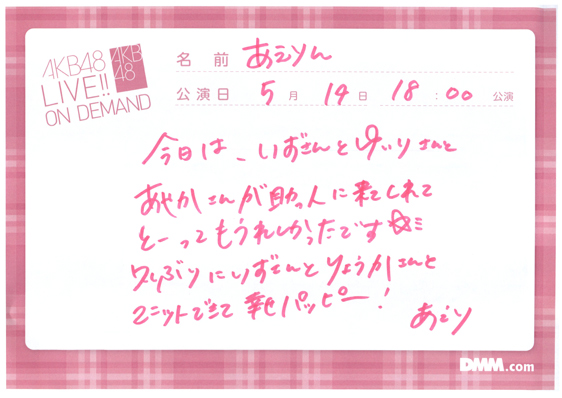 AKB48
LIVE!!
ON DEMAND
AKB
48
名前 あえりん
公演日 5月 14日 18:00 公演
今日は、いずさんと
さんと
あやかさんが助っ人に来てくれて
とーってもうれしかったです☆ミ
ぶりにいずさんとりょうかさんと
ユニットできて幸せハッピー!
あえり
DMM.com